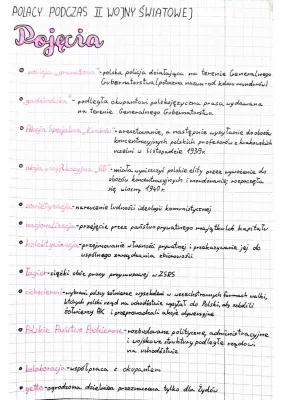 POLACY PODCZAS II WOJNY ŚWIATOWEJ
Pojęcia
policja "granatowa" - polska policja działająca na terenie Generalnego
Gubernatorstwa (potoczna nazwa - od koloru mundurów)
"gadzinówka" - podległa okupantowi polskojęzyczna prasa wydawana
na terenie Generalnego Gubernatorstwa
Akcja Specjalna "Kraków" - aresztowanie, a następnie wysyłanie do obozów
koncentracyjnych polskich profesorów z krakowskich
uczelni w listopadzie 1939r.
akcja "AB" - miała wyniszczyć polskie elity przez wywożenie do
obozów koncentracyjnych i mordowanie; rozpoczęła
się wiosną 1940r.
sowietyzacja - narzucenie ludności ideologii komunistycznej
nacjonalizacja - przejęcie przez państwo prywatnego majątku lub kapitału
kolektywizacja - przejmowanie własności prywatnej i przekazywanie jej do
wspólnego zarządzania zbiorowości
łagier - ciężki obóz pracy przymusowej w ZSRS
cichociemni - wybrani polscy żołnierze, wyszkoleni w wszechstronnych formach walki,
których polski rząd na uchodźstwie wysyłał do Polski, aby szkolili
żołnierzy AK i przeprowadzali akcje dywersyjne
Polskie Państwo Podziemne - rozbudowane polityczne, administracyjne
i wojskowe struktury podległe rządowi
na uchodźstwie
kolaboracja - współpraca z okupantem
getto - ogrodzona dzielnica przeznaczona tylko dla Żydów